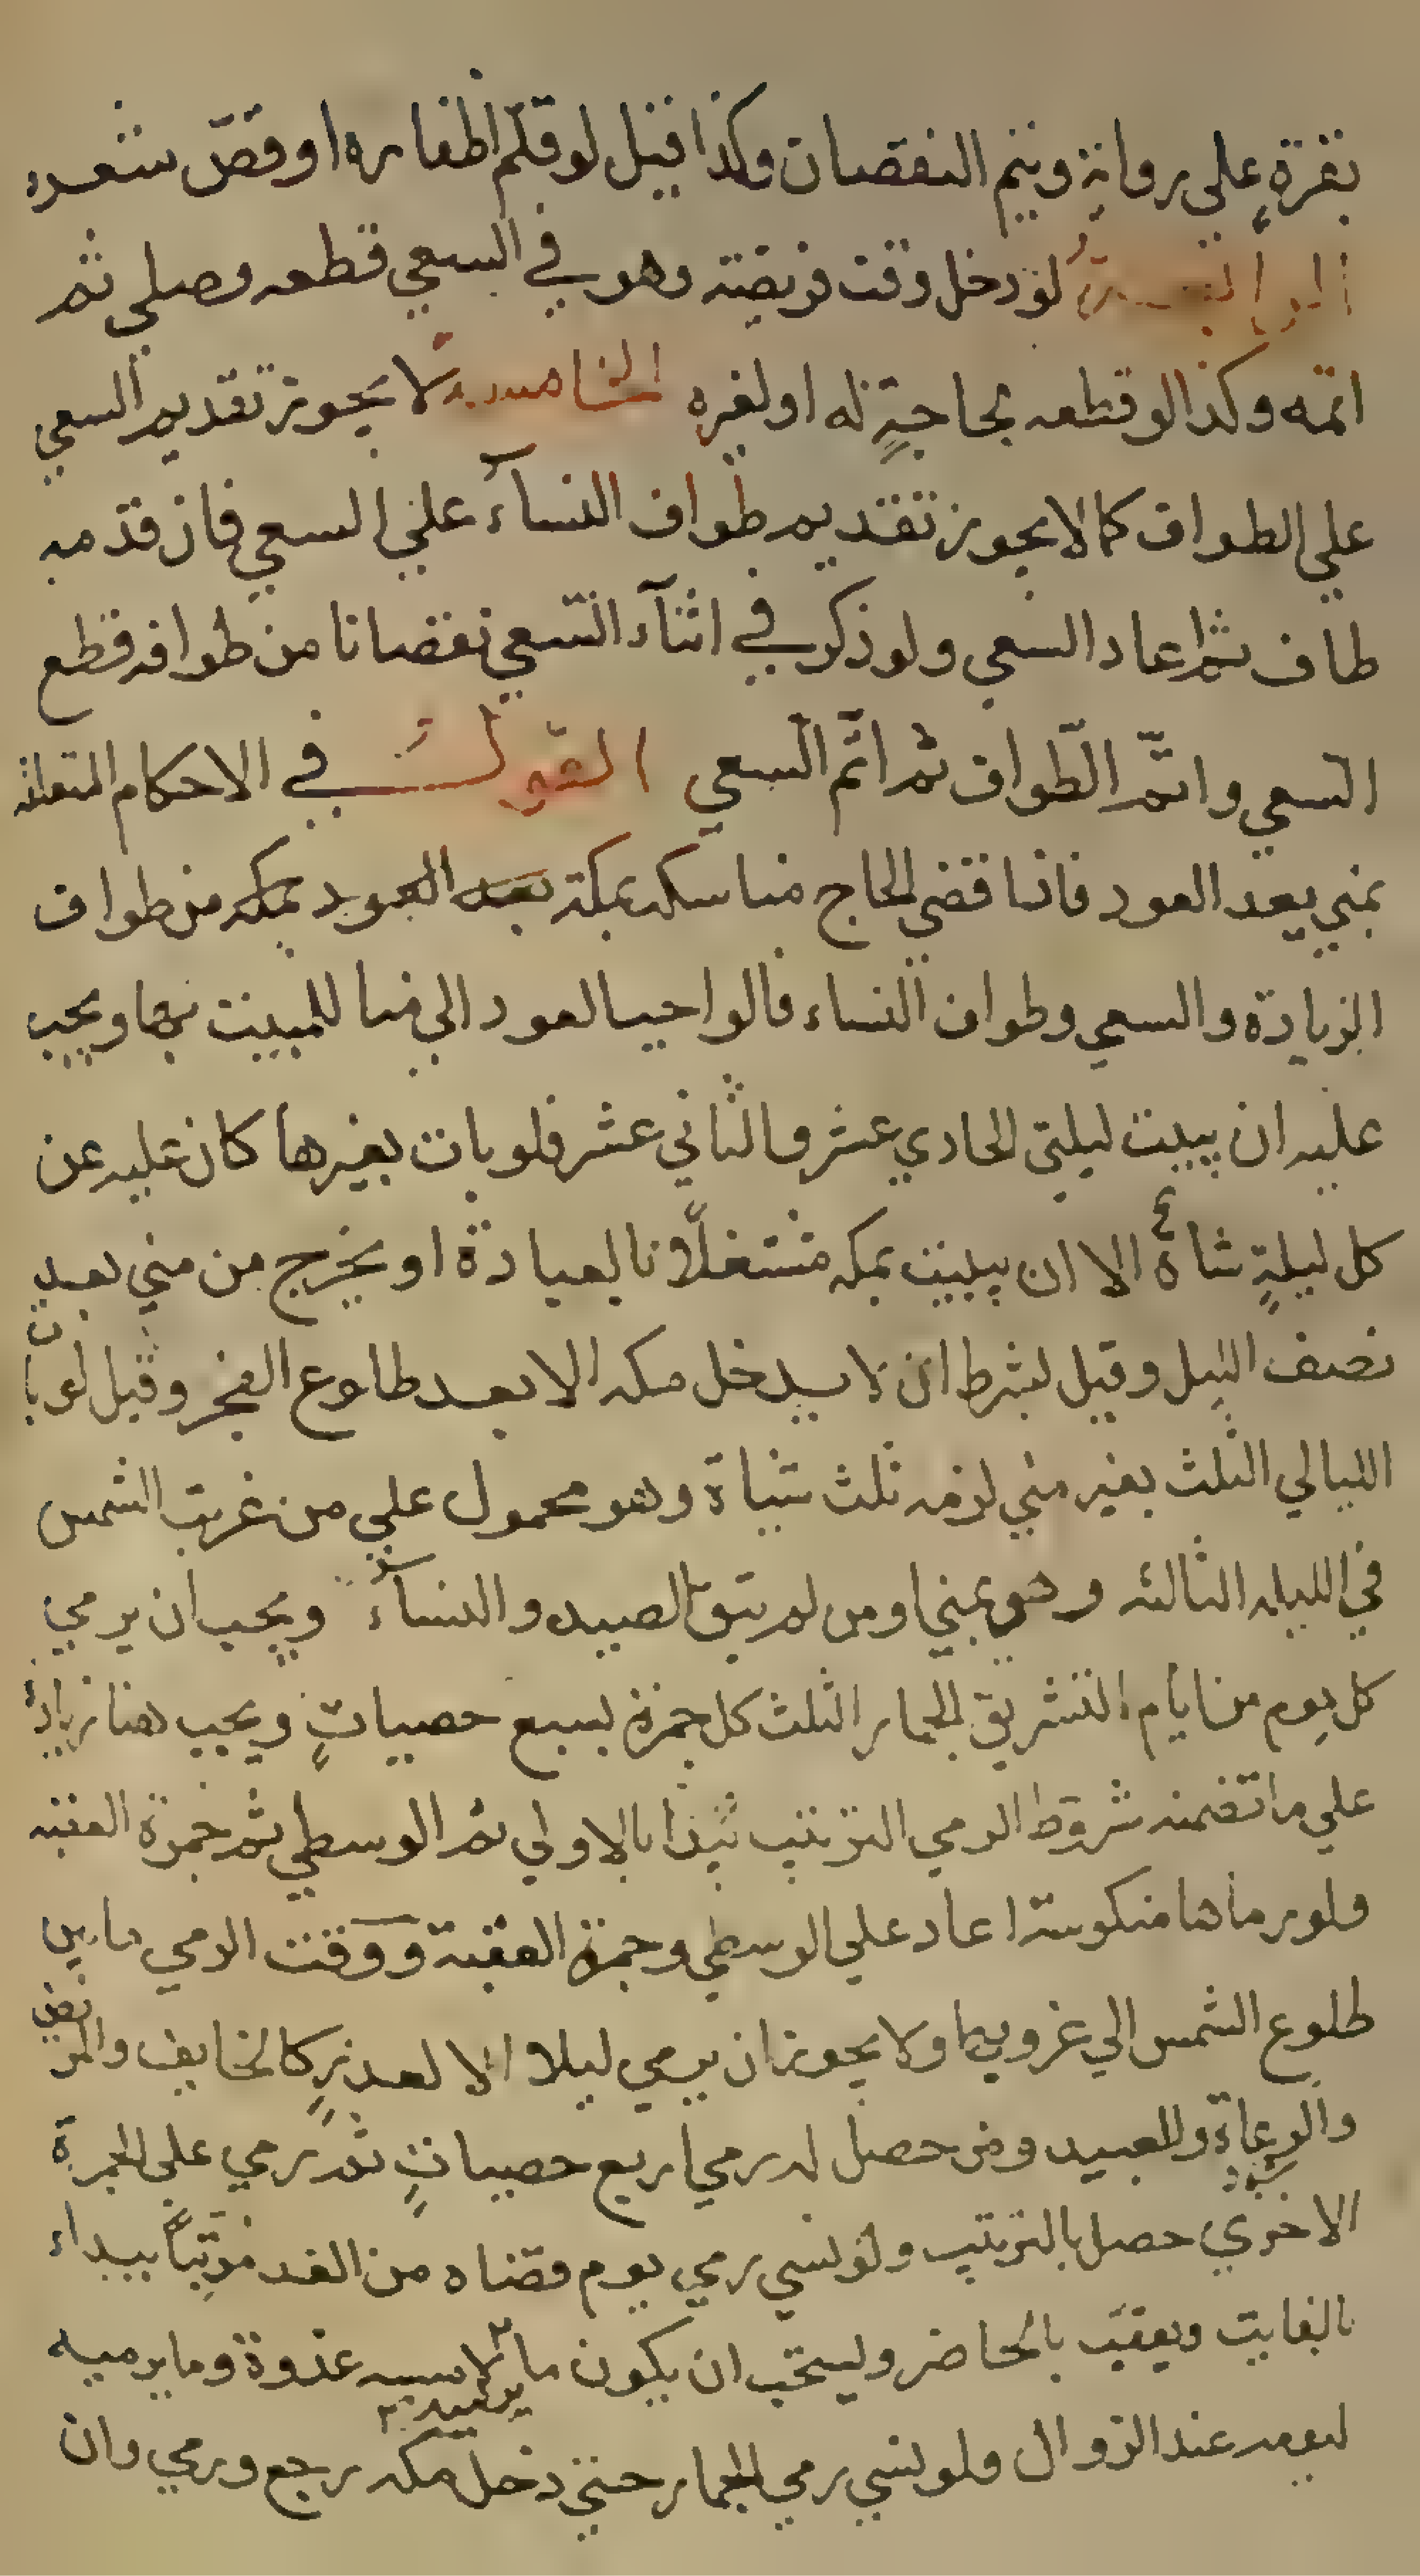 بقرة علي رواية ويتم النقصان وكذا قيل لو قلم اظفاره او قص شعره
الرابعة لو دخل وقت فريضة وهو في السعي قطعه وصلي ثم
اتمه وكذا لو قطعه لحاجةٍ له او لغيره الخامسة لا يجوز تقديم السعي
علي الطواف كما لا يجوز تقديم طواف النسآء علي السعي فان قدمه
طاف ثم اعاد السعي ولو ذكر في اثنآء السعي نقصانا من طوافه قطع
السعي واتمّ الطّواف ثم اتمّ السعي القول في الاحكام المتعلقة
بمني بعد العود فاذا قضي الحاج مناسكه بمكة بعد العود بمكه من طواف
الزيادة والسعي وطواف النساء فالواجب العود الي منا للمبيت بها ويجب
عليه ان يبيت ليلتي الحادي عشر والثاني عشر فلو بات بغيرها كان عليه عن
كل ليلةٍ شاة الا ان يبيت بمكه مشتغلًا بالعبادة او يخرج من مني بعد
نصف الليل وقيل بشرط ان لا يدخل مكه الا بعد طلوع الفجر وقيل لو بات
الليالي الثلث بغير مني لزمه ثلث شياة وهو محمول علي من غربت الشمس
في الليله الثالثه وهو بمني او من لم يتق الصيد والنسآء ويجب ان يرمي
كل يوم من ايام التشريق الجمار الثلث كل جمرة بسبع حصياتٍ ويجب هنا زيادة
علي ما تضمنه شروط الرمي الترتيب يبدا بالاولي ثم الوسطي ثم جمرة العقبه
ولو رماها منكوسة اعاد علي الوسطي وجمرة العقبة ووقت الرمي ما بين
طلوع الشمس الي غروبها ولا يجوز ان يرمي ليلا الا لعذرٍ كالخايف والمريض
والرعاة والعبيد ومن حصل له رمي اربع حصياتٍ ثم رمي علي الجمرة
الاخري حصل بالترتيب ولو نسي رمي يوم قضاه من الغد مرتباً يبداء
بالفايت ويعقب بالحاضر ويستحب ان يكون ما يرميه لامسه غدوة وما يرميه
ليومه عند الزوال ولو نسي رمي الجمار حتي دخل مكه رجع ورمي وان